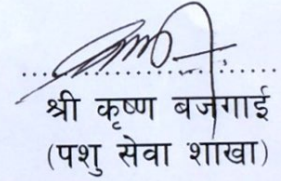 श्री कृष्ण बजगाई
(पशु सेवा शाखा)